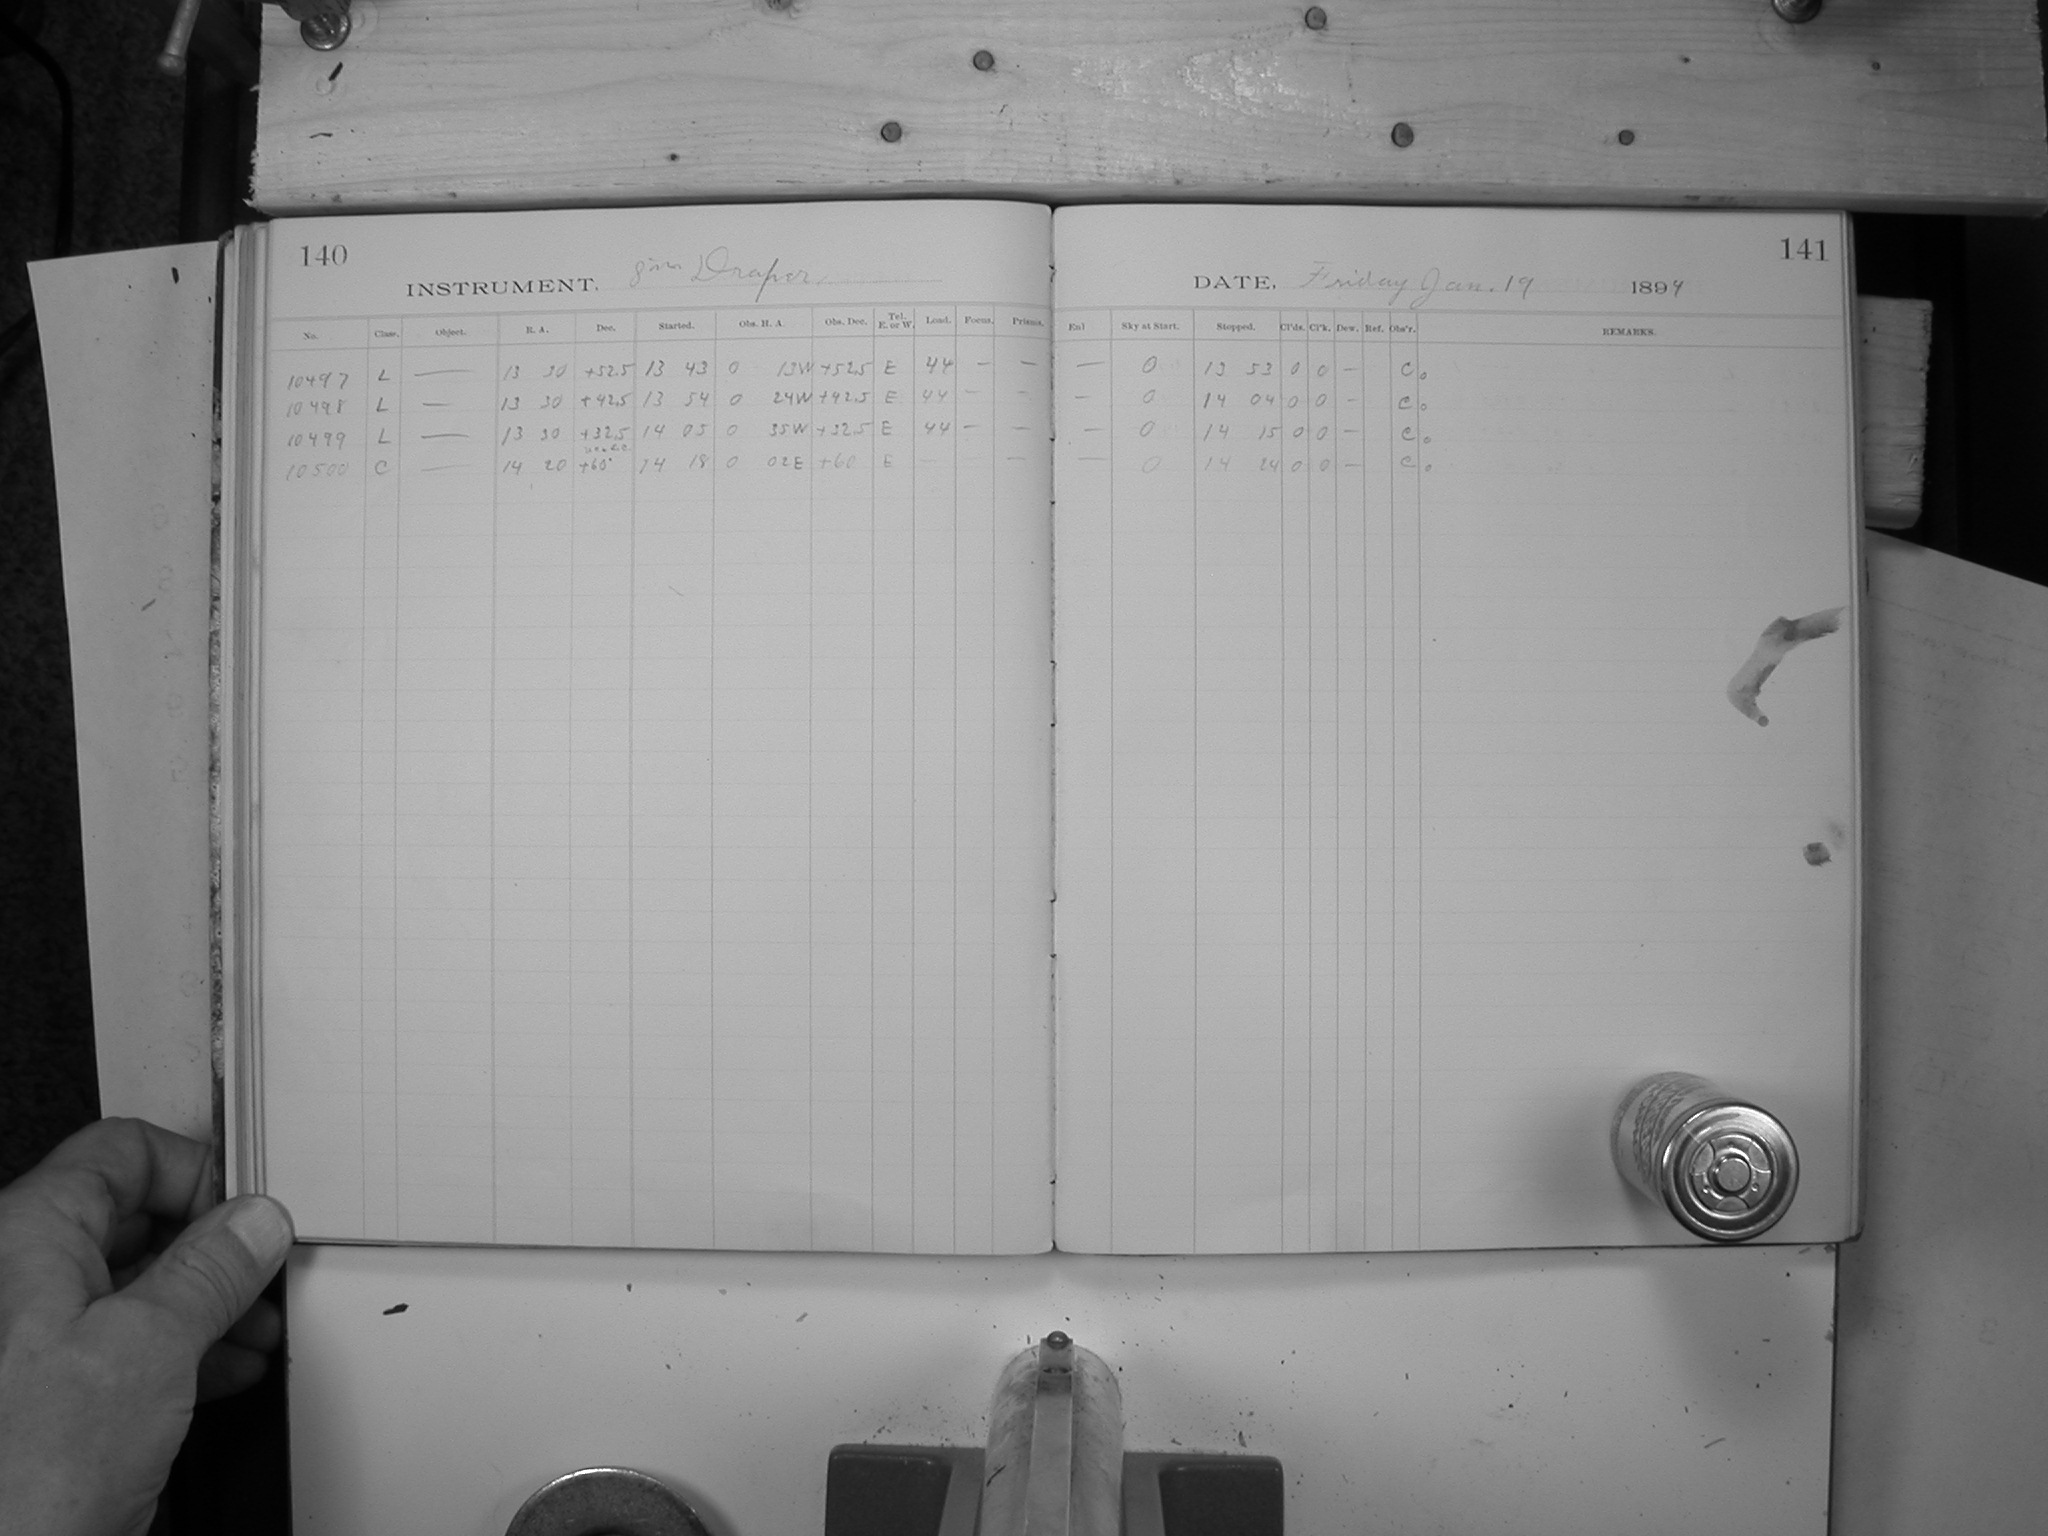 140
INSTRUMENT. 8 in Draper.
No. Class. Object. R. A. Dec. Started. Obs. H. A. Obs. Dec. Tel. E. or W. Load. Focus. Prisms.
10497 L — 13 30 +52.5 13 43 0 13W +52.5 E 44 — —
10498 L — 13 30 +42.5 13 54 0 24W +42.5 E 44 — —
10499 L — 13 30 +32.5 14 05 0 35W +32.5 E 44 — —
10500 C — 14 20 +60° 14 18 0 02E +60 E — — —
141
DATE. Friday Jan. 19 1894
Enl Sky at Start. Stopped. Cl'ds. Cl'k. Dew. Ref. Obs'r. REMARKS.
— 0 13 53 0 0 — C.
— 0 14 04 0 0 — C.
— 0 14 15 0 0 — C.
— 0 14 24 0 0 — C.